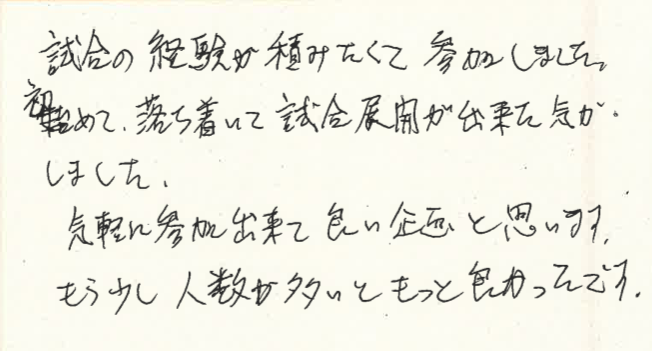 試合の経験が積みたくて参加しました。
初めて、落ち着いて試合展開が出来た気が
しました。
気軽に参加出来て良い企画と思います。
もう少し人数が多いともっと良かったです。